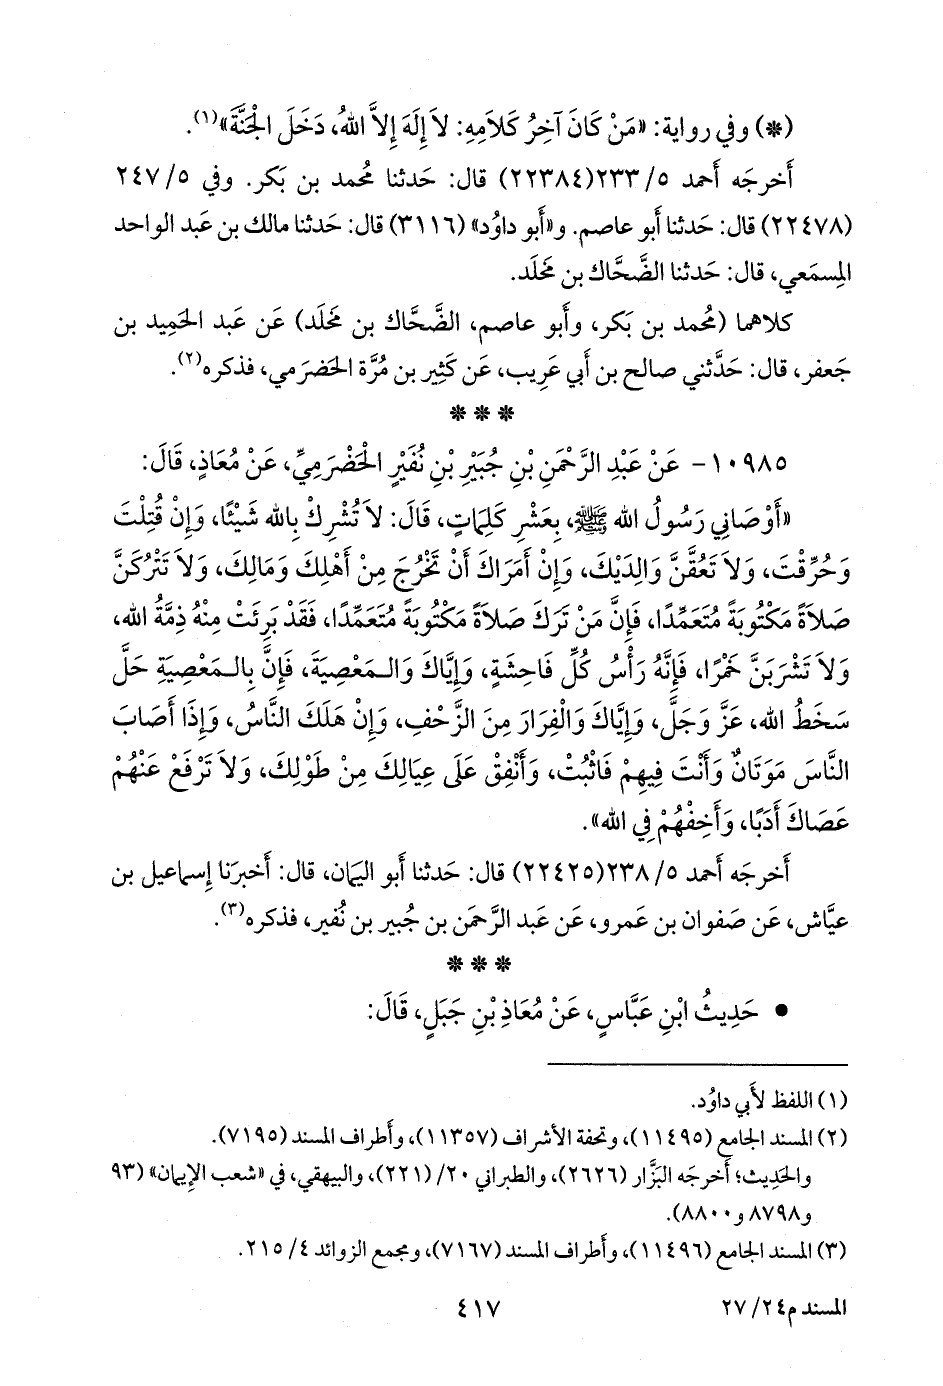 (*) وفي رواية: «مَنْ كَانَ آخِرُ كَلاَمِهِ: لاَ إِلَهَ إِلاَّ اللهُ، دَخَلَ الْجَنَّةَ»(١).
أَخرجَه أَحمد ٥/ ٢٣٣(٢٢٣٨٤) قال: حَدثنا مُحمد بن بَكر. وفي ٥/ ٢٤٧
(٢٢٤٧٨) قال: حَدثنا أَبو عاصم. و«أَبو داوُد» (٣١١٦) قال: حَدثنا مالك بن عَبد الواحد
المِسمَعي، قال: حَدثنا الضَّحَّاك بن مَخلَد.
كلاهما (مُحمد بن بَكر، وأَبو عاصم، الضَّحَّاك بن مَخلَد) عَن عَبد الحَميد بن
جَعفر، قال: حَدَّثني صالح بن أَبي عَريب، عَن كَثير بن مُرَّة الحَضرَمي، فذكره(٢).
***
١٠٩٨٥- عَنْ عَبْدِ الرَّحْمَنِ بْنِ جُبَيْرِ بْنِ نُفَيْرٍ الْحَضْرَمِيِّ، عَنْ مُعَاذٍ، قَالَ:
«أَوْصَانِي رَسُولُ الله ﷺ، بِعَشْرِ كَلِمَاتٍ، قَالَ: لاَ تُشْرِكْ بِالله شَيْئًا، وَإِنْ قُتِلْتَ
وَحُرِّقْتَ، وَلاَ تَعُقَّنَّ وَالِدَيْكَ، وَإِنْ أَمَرَاكَ أَنْ تَخْرُجَ مِنْ أَهْلِكَ وَمَالِكَ، وَلاَ تَتْرُكَنَّ
صَلاَةً مَكْتُوبَةً مُتَعَمِّدًا، فَإِنَّ مَنْ تَرَكَ صَلاَةً مَكْتُوبَةً مُتَعَمِّدًا، فَقَدْ بَرِئَتْ مِنْهُ ذِمَّةُ الله،
وَلاَ تَشْرَبَنَّ خَمْرًا، فَإِنَّهُ رَأْسُ كُلِّ فَاحِشَةٍ، وَإِيَّاكَ وَالـمَعْصِيَةَ، فَإِنَّ بِالـمَعْصِيَةِ حَلَّ
سَخَطُ الله، عَزَّ وَجَلَّ، وَإِيَّاكَ وَالْفِرَارَ مِنَ الزَّحْفِ، وَإِنْ هَلَكَ النَّاسُ، وَإِذَا أَصَابَ
النَّاسَ مَوَتَانٌ وَأَنْتَ فِيهِمْ فَاثْبُتْ، وَأَنْفِقْ عَلَى عِيَالِكَ مِنْ طَوْلِكَ، وَلاَ تَرْفَعْ عَنْهُمْ
عَصَاكَ أَدَبًا، وَأَخِفْهُمْ فِي الله».
أَخرجَه أَحمد ٥/ ٢٣٨(٢٢٤٢٥) قال: حَدثنا أَبو اليَمان، قال: أَخبرَنا إِسماعيل بن
عيَّاش، عَن صَفوان بن عَمرو، عَن عَبد الرَّحمَن بن جُبير بن نُفير، فذكره(٣).
***
• حَدِيثُ ابْنِ عَبَّاسٍ، عَنْ مُعَاذِ بْنِ جَبَلٍ، قَالَ:
(١) اللفظ لأَبي داوُد.
(٢) المسند الجامع (١١٤٩٥)، وتحفة الأشراف (١١٣٥٧)، وأَطراف المسند (٧١٩٥).
والحَديث؛ أَخرجَه البَزَّار (٢٦٢٦)، والطبراني ٢٠/ (٢٢١)، والبيهقي، في «شعب الإيمان» (٩٣
و٨٧٩٨ و٨٨٠٠).
(٣) المسند الجامع (١١٤٩٦)، وأَطراف المسند (٧١٦٧)، ومجمع الزوائد ٤/ ٢١٥.
المسند م٢٤/ ٢٧
٤١٧